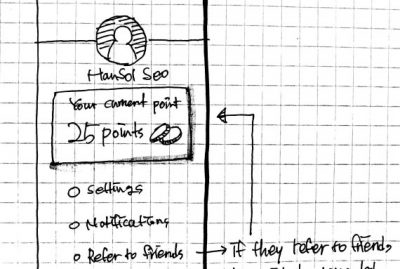 HanSol Seo
Your current point
25 points
Settings
Notifications
Refer to friends → If they refer to friends,